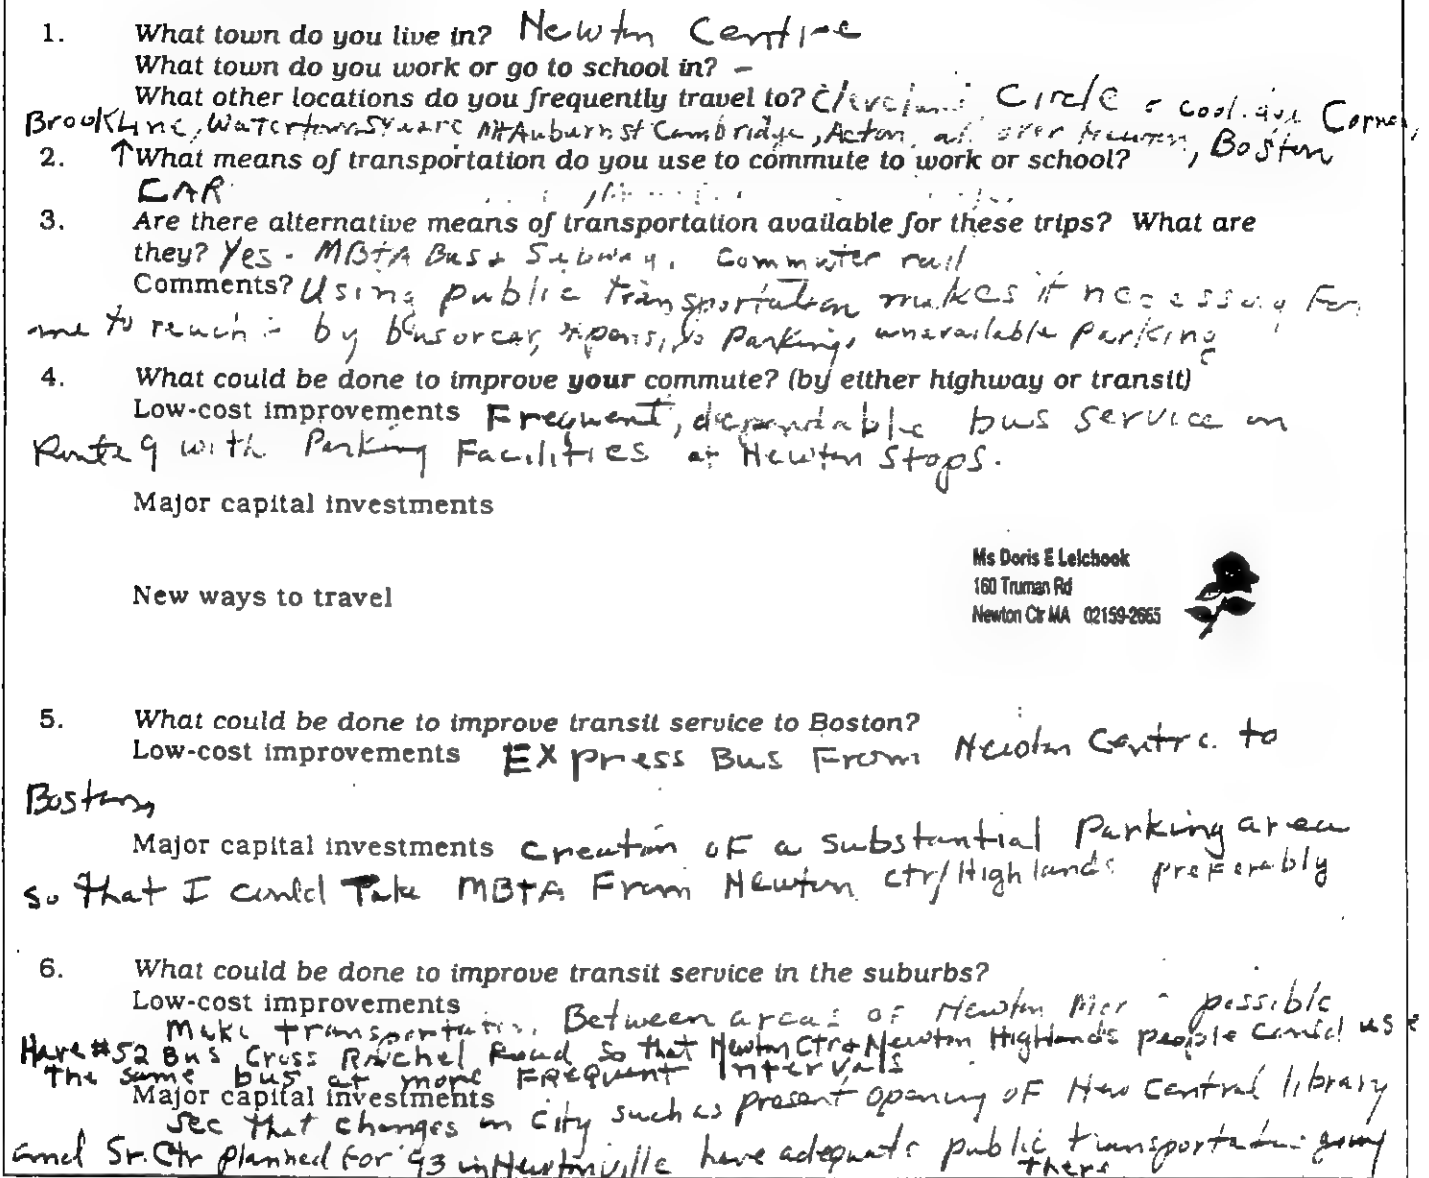 1. What town do you live in? Newton Centre
What town do you work or go to school in? –
What other locations do you frequently travel to? Cleveland Circle & Coolidge Corner,
Brookline, Watertown Square Mt Auburn St Cambridge, Acton, all over Newton, Boston
2. ↑What means of transportation do you use to commute to work or school?
CAR
3. Are there alternative means of transportation available for these trips? What are
they? Yes - MBTA Bus & Subway, Commuter rail
Comments? Using public transportation makes it necessary for
me to reach by bus or car, parking, unavailable parking
4. What could be done to improve your commute? (by either highway or transit)
Low-cost improvements Frequent, dependable bus service on
Route 9 with Parking Facilities at Newton Stops.
Major capital investments
Ms Doris E Lelchook
160 Truman Rd
Newton Ctr MA 02159-2665
New ways to travel
5. What could be done to improve transit service to Boston?
Low-cost improvements EXpress Bus From Newton Centre to
Boston
Major capital investments creation of a substantial Parking area
so that I could Take MBTA From Newton ctr/Highlands preferably
6. What could be done to improve transit service in the suburbs?
Low-cost improvements
Make transportation Between areas of Newton possible
Have #52 Bus Cross Rachel Road so that Newton Ctr & Newton Highlands people could use
the same bus at more Frequent Intervals
Major capital investments
See that changes in City such as present opening of New Central library
and Sr. Ctr planned for '93 in Newtonville have adequate public transportation going
there